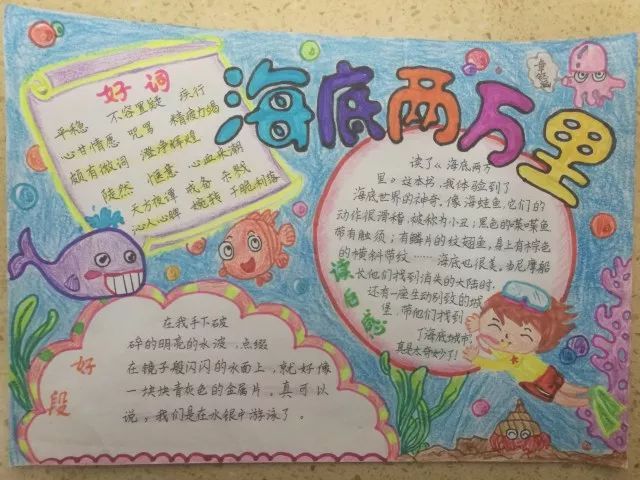 海底两万里
好词
平稳 不容置疑 疾行
心甘情愿 咒骂 精疲力竭
颇有微词 澄净辉煌
陡然 惬意 心血来潮
天方夜谭 戒备 杀戮
沁人心脾 婉转 干脆利落
读了《海底两万
里》这本书,我体验到了
海底世界的神奇。像海蛙鱼,它们的
动作很滑稽,被称为小丑;黑色的喋喋鱼
带有触须;有鳞片的纹翅鱼,身上有棕色
的横斜带纹……海底也很美。当尼摩船
长他们找到消失的大陆时,
还有一座生动别致的城
堡,带他们找到
了海底城市,
真是太奇妙了!
读后感
好段
在我手下破
碎的明亮的水波,点缀
在镜子般闪闪的水面上,就好像
一块块青灰色的金属片,真可以
说,我们是在水银中游泳了。